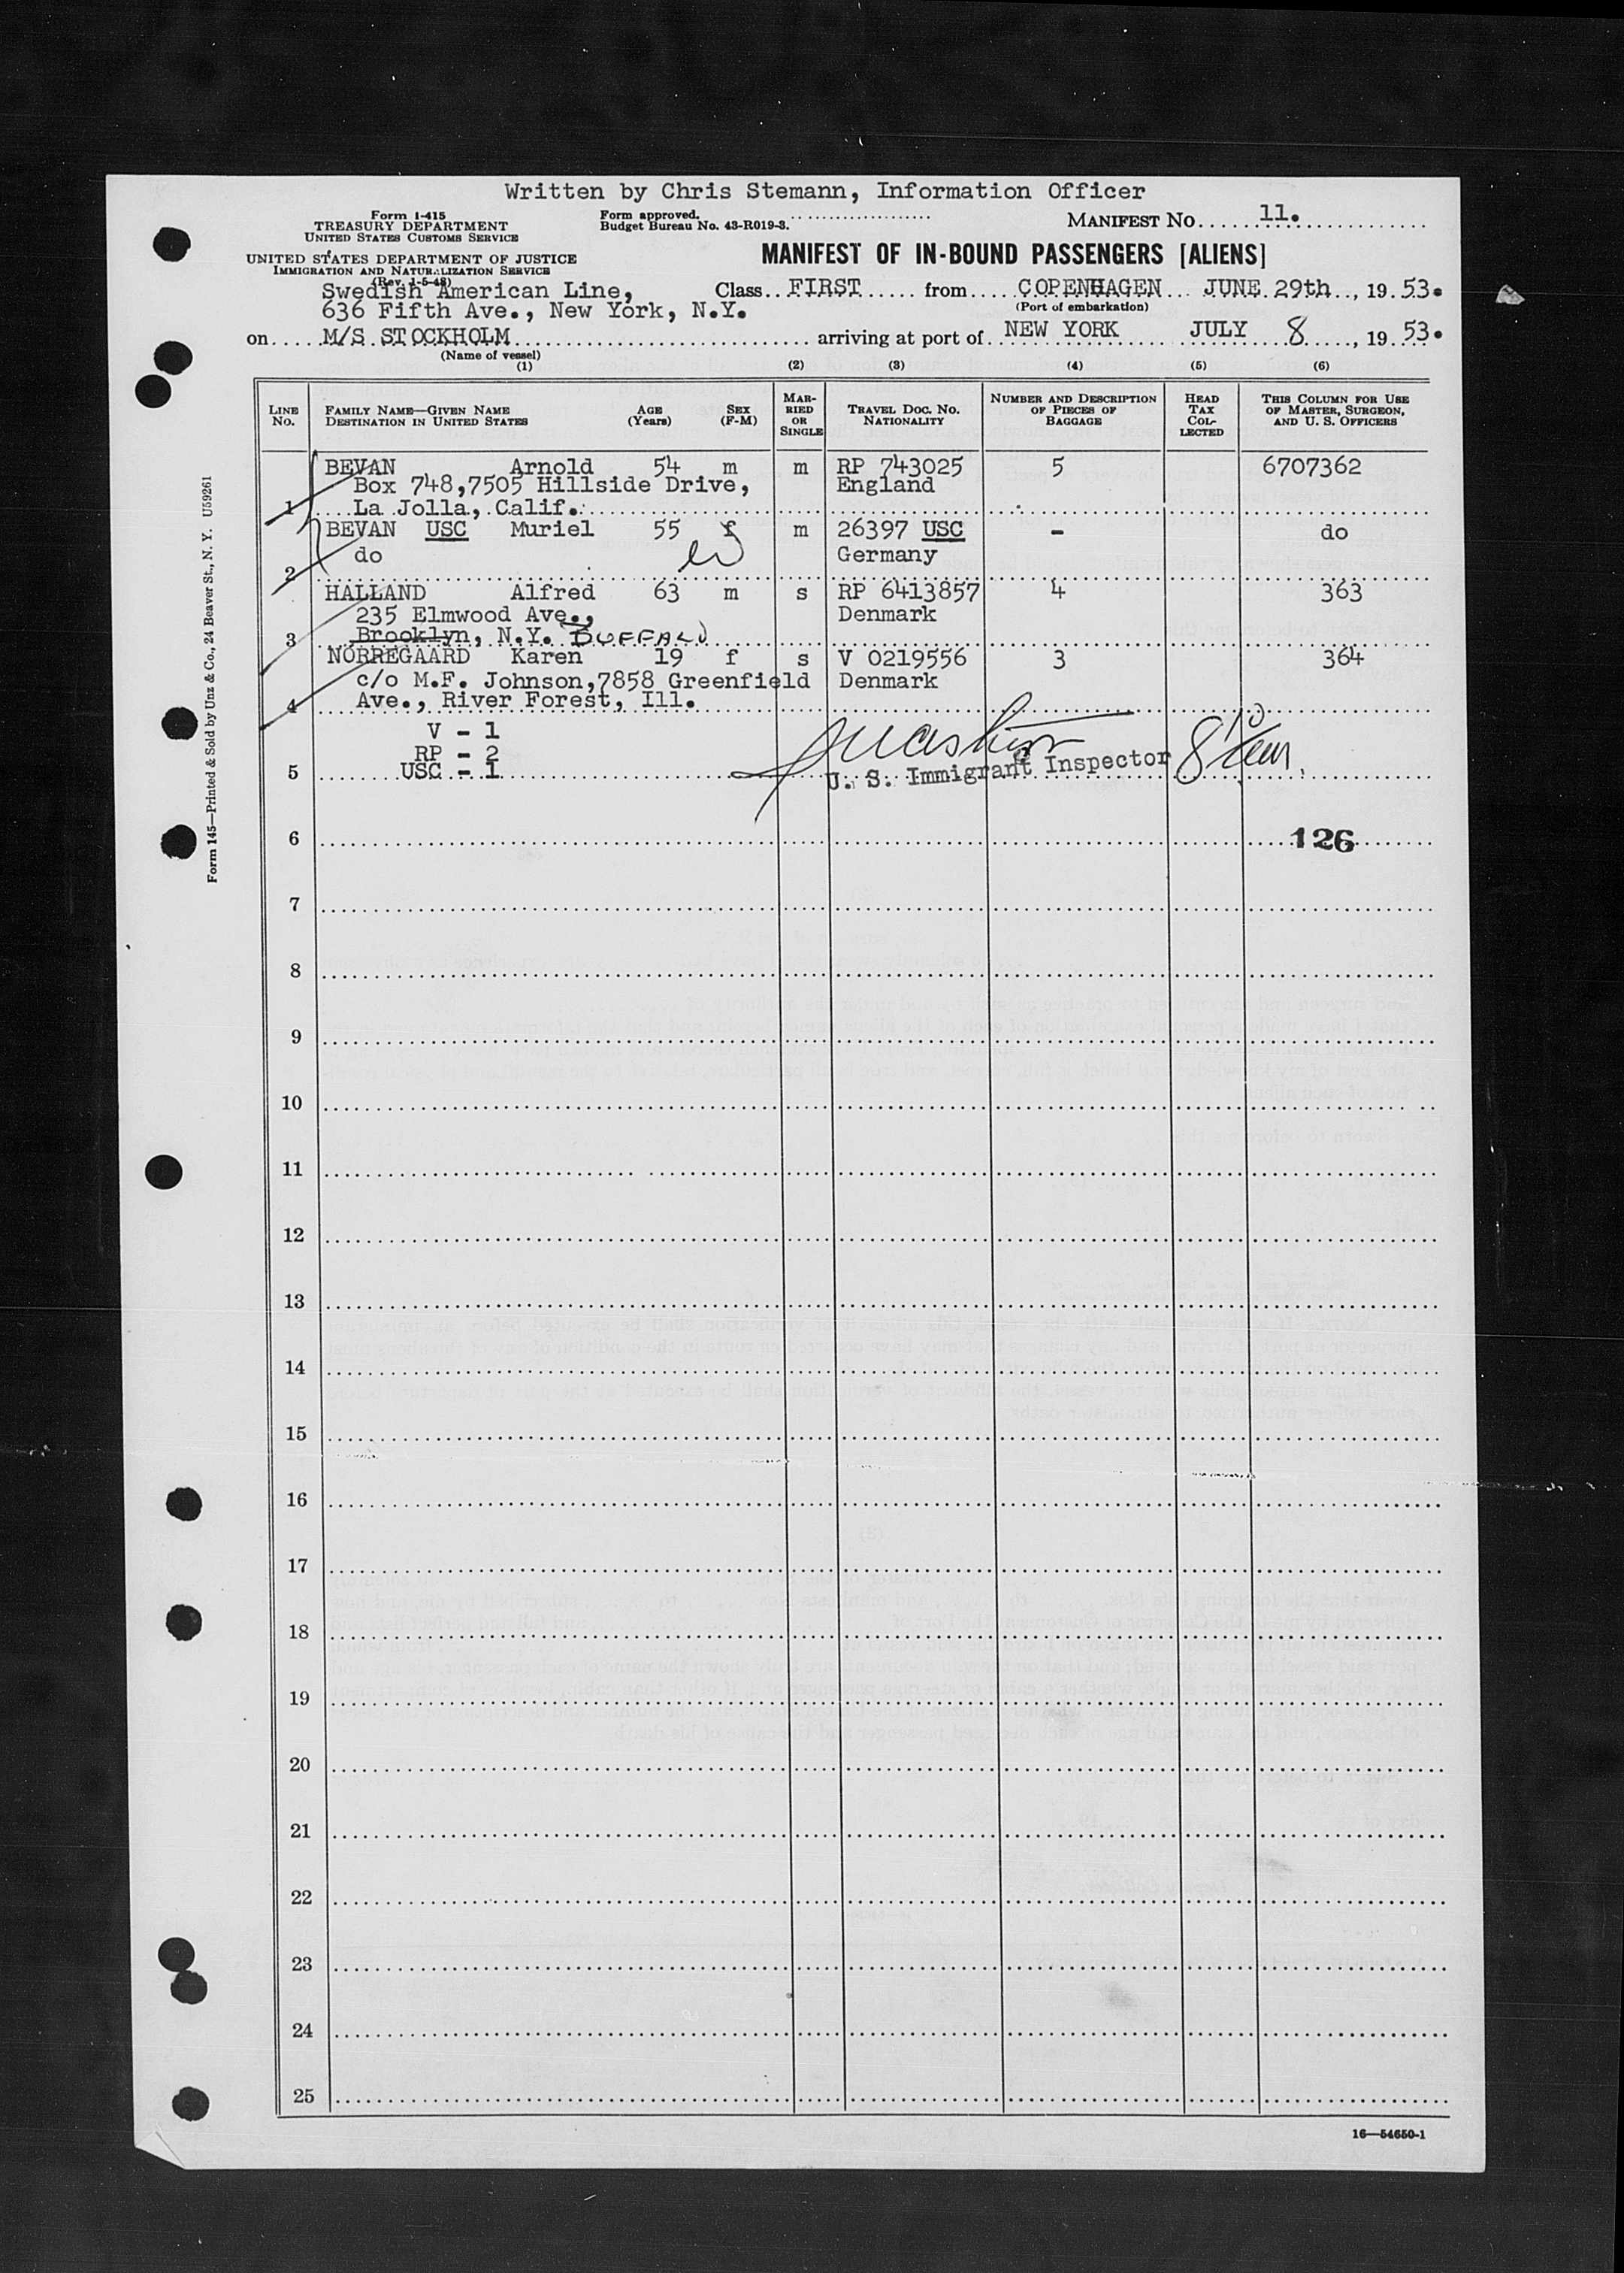 Written by Chris Stemann, Information Officer
Form I-415
TREASURY DEPARTMENT
UNITED STATES CUSTOMS SERVICE
Form approved.
Budget Bureau No. 43-R019-3.
MANIFEST NO. 11.
UNITED STATES DEPARTMENT OF JUSTICE
IMMIGRATION AND NATURALIZATION SERVICE
(Rev. 1-5-48)
MANIFEST OF IN-BOUND PASSENGERS [ALIENS]
Swedish American Line,
636 Fifth Ave., New York, N.Y.
Class FIRST from COPENHAGEN JUNE 29th, 19 53.
(Port of embarkation)
on M/S STOCKHOLM arriving at port of NEW YORK JULY 8, 19 53.
(Name of vessel)
(1) (2) (3) (4) (5) (6)
LINE NO. FAMILY NAME—GIVEN NAME DESTINATION IN UNITED STATES AGE (Years) SEX (F-M) MARRIED OR SINGLE TRAVEL DOC. NO. NATIONALITY NUMBER AND DESCRIPTION OF PIECES OF BAGGAGE HEAD TAX COLLECTED THIS COLUMN FOR USE OF MASTER, SURGEON, AND U. S. OFFICERS
BEVAN Arnold 54 m m RP 743025 5 6707362
Box 748,7505 Hillside Drive, England
1 La Jolla, Calif.
BEVAN USC Muriel 55 f m 26397 USC - do
do Germany
2
HALLAND Alfred 63 m s RP 6413857 4 363
235 Elmwood Ave., Denmark
3 Brooklyn, N.Y. BUFFALO
NORREGAARD Karen 19 f s V 0219556 3 364
c/o M.F. Johnson,7858 Greenfield Denmark
4 Ave., River Forest, Ill.
V - 1
RP - 2
5 USC - 1
U. S. Immigrant Inspector
6 126
7
8
9
10
11
12
13
14
15
16
17
18
19
20
21
22
23
24
25
16—54650-1
Form 145—Printed & Sold by Unz & Co., 24 Beaver St., N. Y. U59261